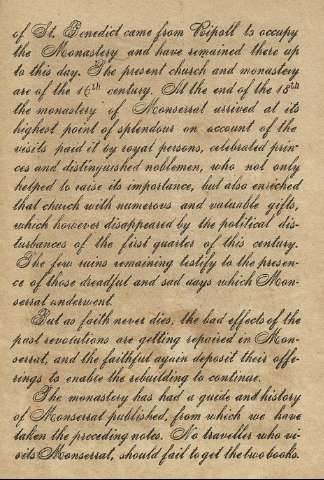 of St. Benedict came from Ripoll to occupy
the Monastery and have remained there up
to this day. The present church and monastery
are of the 16th century. At the end of the 18th
the monastery of Monserrat arrived at its
highest point of splendour on account of the
visits paid it by royal persons, celebrated prin-
ces and distinguished noblemen, who not only
helped to raise its importance, but also enriched
that church with numerous and valuable gifts,
which however disappeared by the political dis-
turbances of the first quarter of this century.
The few ruins remaining testify to the presen-
ce of those dreadful and sad days which Mon-
serrat underwent.
But as faith never dies, the bad effects of the
past revolutions are getting repaired in Mon-
serrat, and the faithful again deposit their offe-
rings to enable the rebuilding to continue.
The monastery has had a guide and history
of Monserrat published, from which we have
taken the preceding notes. No traveller who vi-
sits Monserrat, should fail to get the two books.